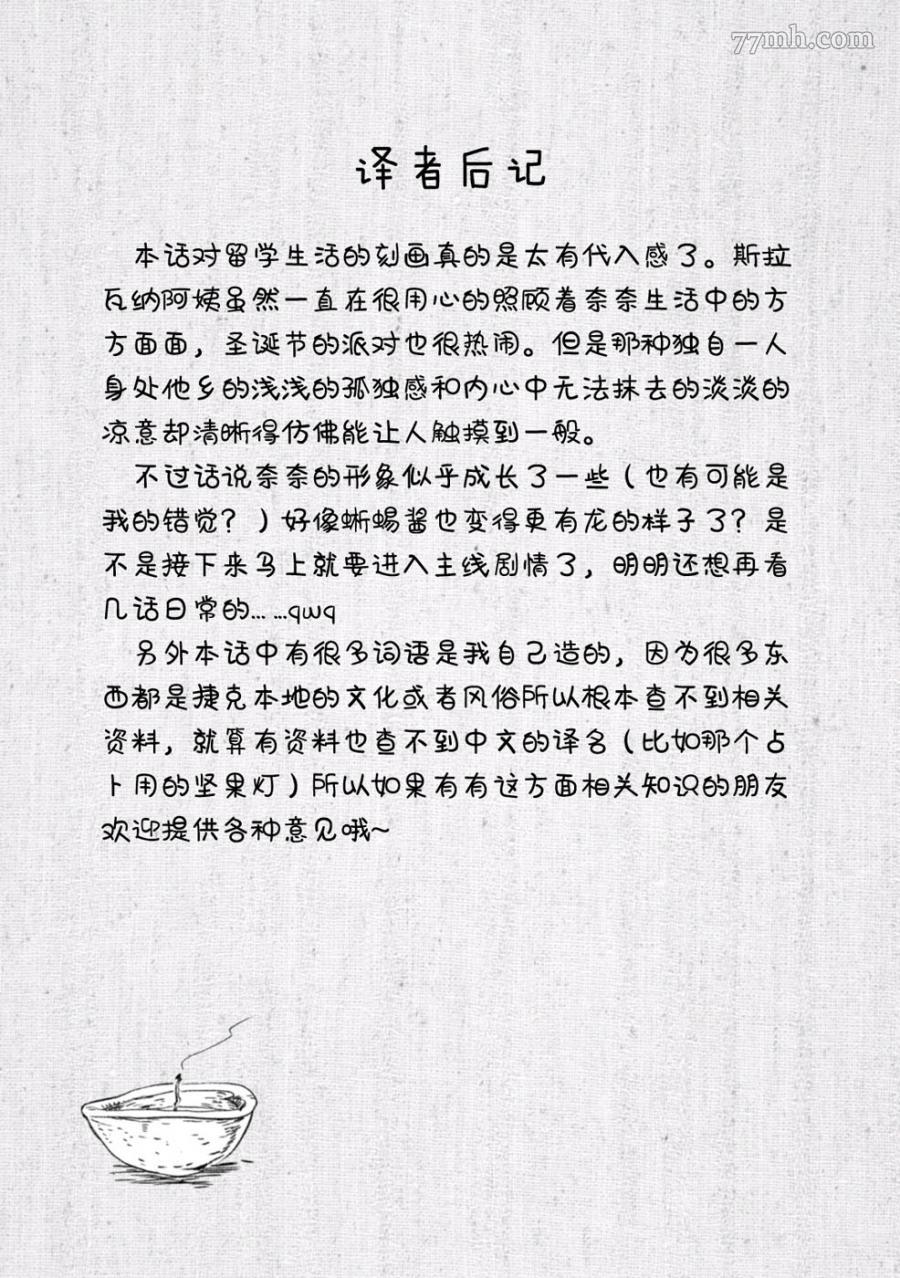 77mh.com
译者后记
本话对留学生活的刻画真的是太有代入感了。斯拉
瓦纳阿姨虽然一直在很用心的照顾着奈奈生活中的方
方面面，圣诞节的派对也很热闹。但是那种独自一人
身处他乡的浅浅的孤独感和内心中无法抹去的淡淡的
凉意却清晰得仿佛能让人触摸到一般。
不过话说奈奈的形象似乎成长了一些（也有可能是
我的错觉？）好像蜥蜴酱也变得更有龙的样子了？是
不是接下来马上就要进入主线剧情了，明明还想再看
几话日常的... ...qwq
另外本话中有很多词语是我自己造的，因为很多东
西都是捷克本地的文化或者风俗所以根本查不到相关
资料，就算有资料也查不到中文的译名（比如那个占
卜用的坚果灯）所以如果有有这方面相关知识的朋友
欢迎提供各种意见哦~